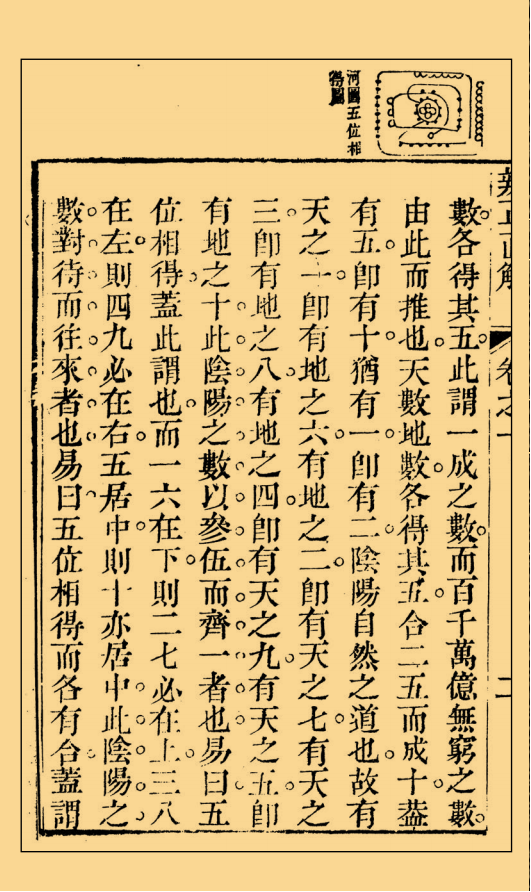 河圖五位相
得圖
數各得其五此謂一成之數而百千萬億無窮之數
由此而推也天數地數各得其五合二五而成十蓋
有五卽有十猶有一卽有二陰陽自然之道也故有
天之一卽有地之六有地之二卽有天之七有天之
三卽有地之八有地之四卽有天之九有天之五卽
有地之十此陰陽之數以參伍而齊一者也易曰五
位相得蓋此謂也而一六在下則二七必在上三八
在左則四九必在右五居中則十亦居中此陰陽之
數對待而往來者也易曰五位相得而各有合蓋謂
卷之一
二